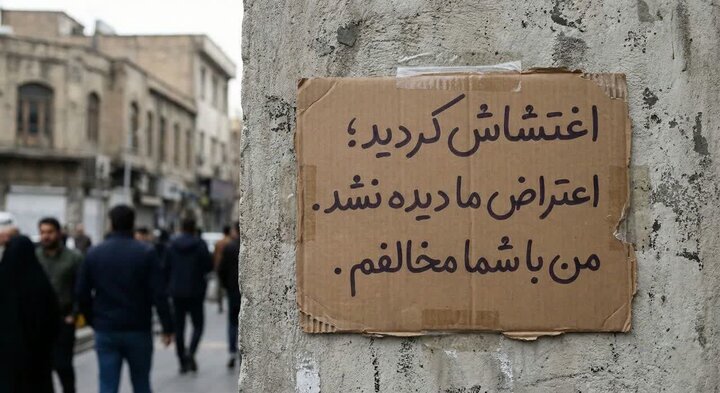 اغتشاش کردید؛
اعتراض ما دیده نشد.
من با شما مخالفم.